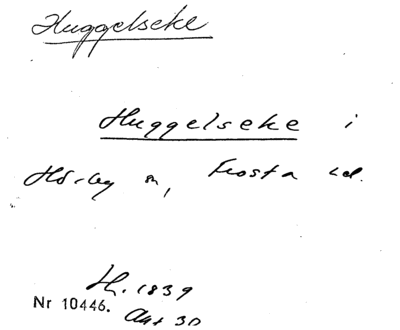 Huggelseke
Huggelseke i
Hörby sn, Frosta hd.
H. 1839
Nr 10446. Akt 30